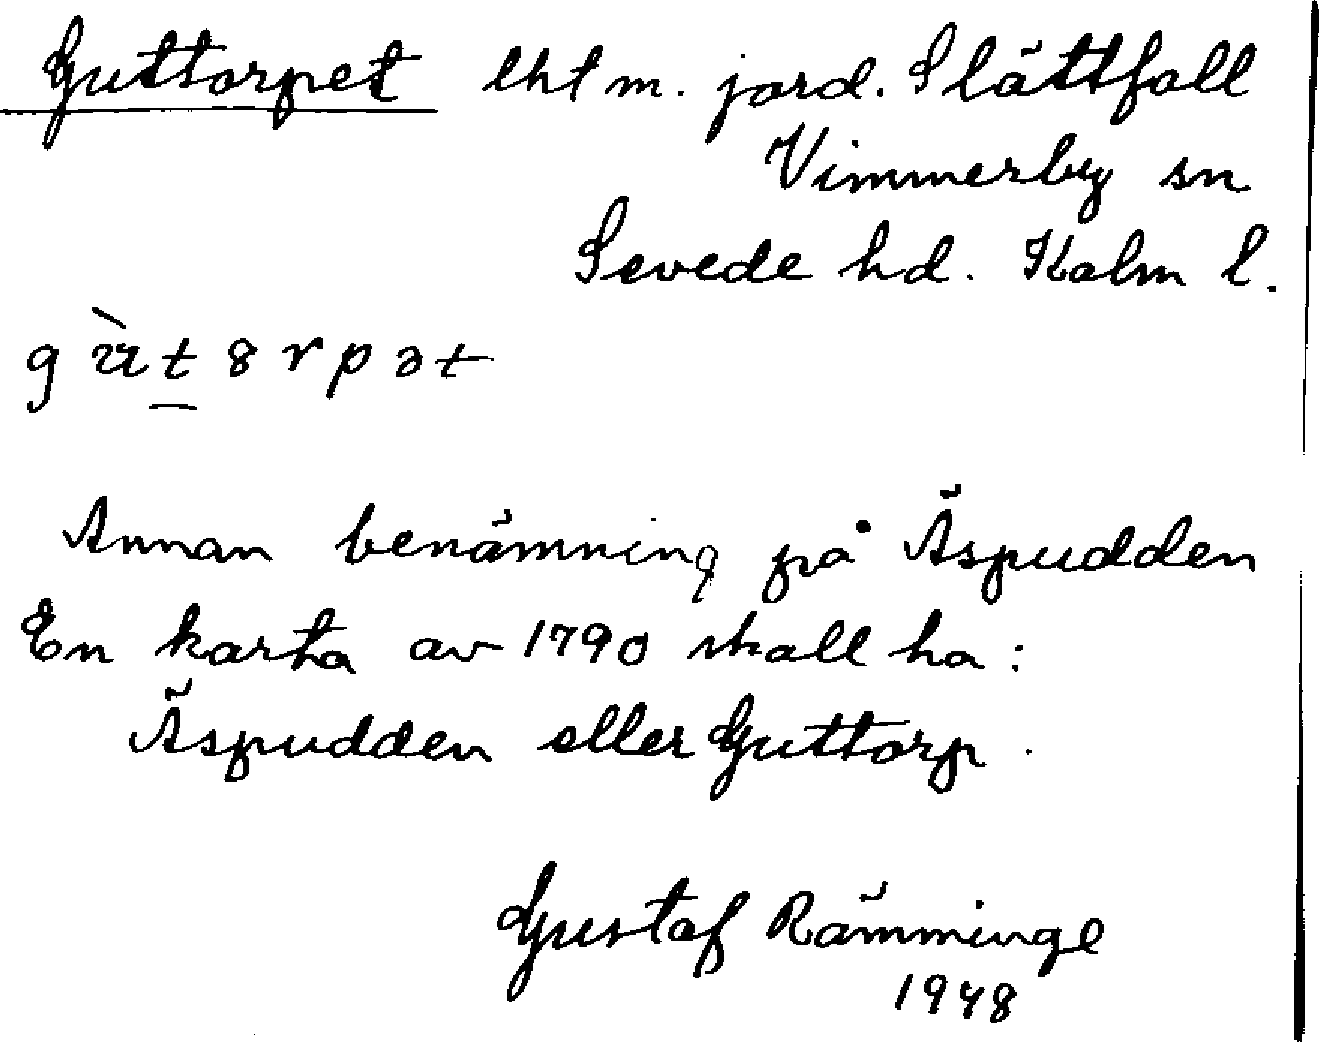 Guttorpet lht m. jord. Slättfall
Vimmerby sn
Sevede hd. Kalm l.
g ù t 8 r p ə t
Annan benämning på Äspudden
En karta av 1790 skall ha:
Äspudden eller Guttorp.
Gustaf Rämminge
1948